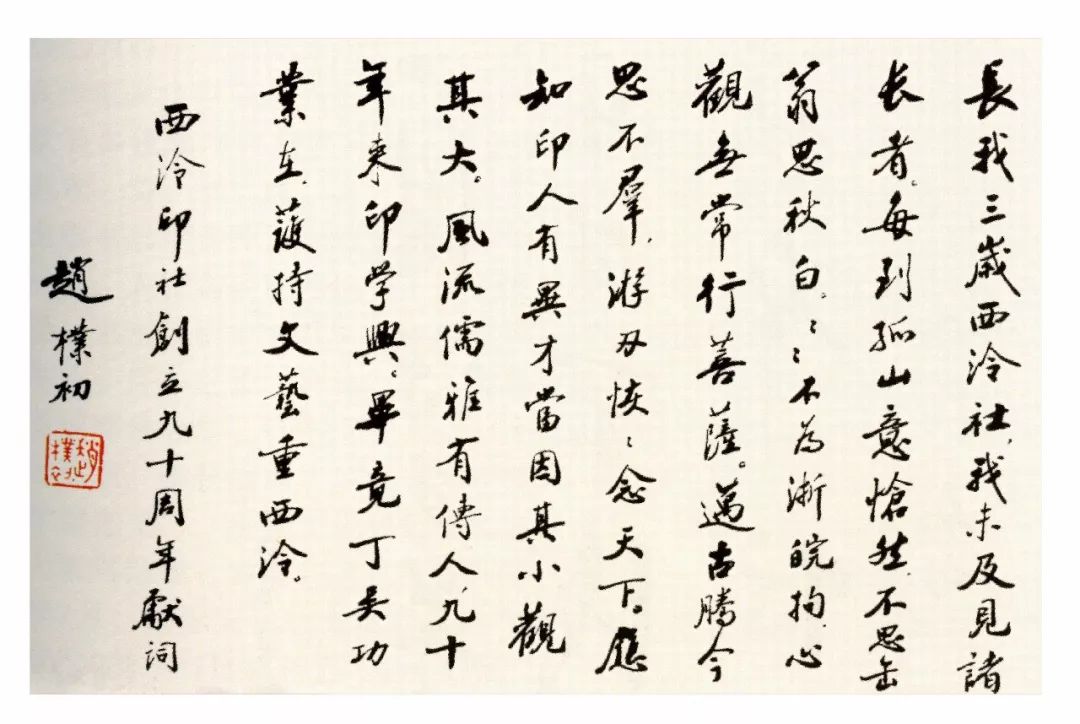 長我三歲西泠社,我未及見諸
长者。每到孤山意愴然,不思缶
翁思秋白。〻〻不為浙皖拘,心
觀無常行菩薩。邁古騰今
思不羣,游刃恢〻念天下。應
知印人有異才當因其小觀
其大。風流儒雅有傳人,九十
年来印学興。畢竟丁吴功
業在,護持文藝重西泠。
西泠印社創立九十周年獻詞
趙樸初
趙樸初